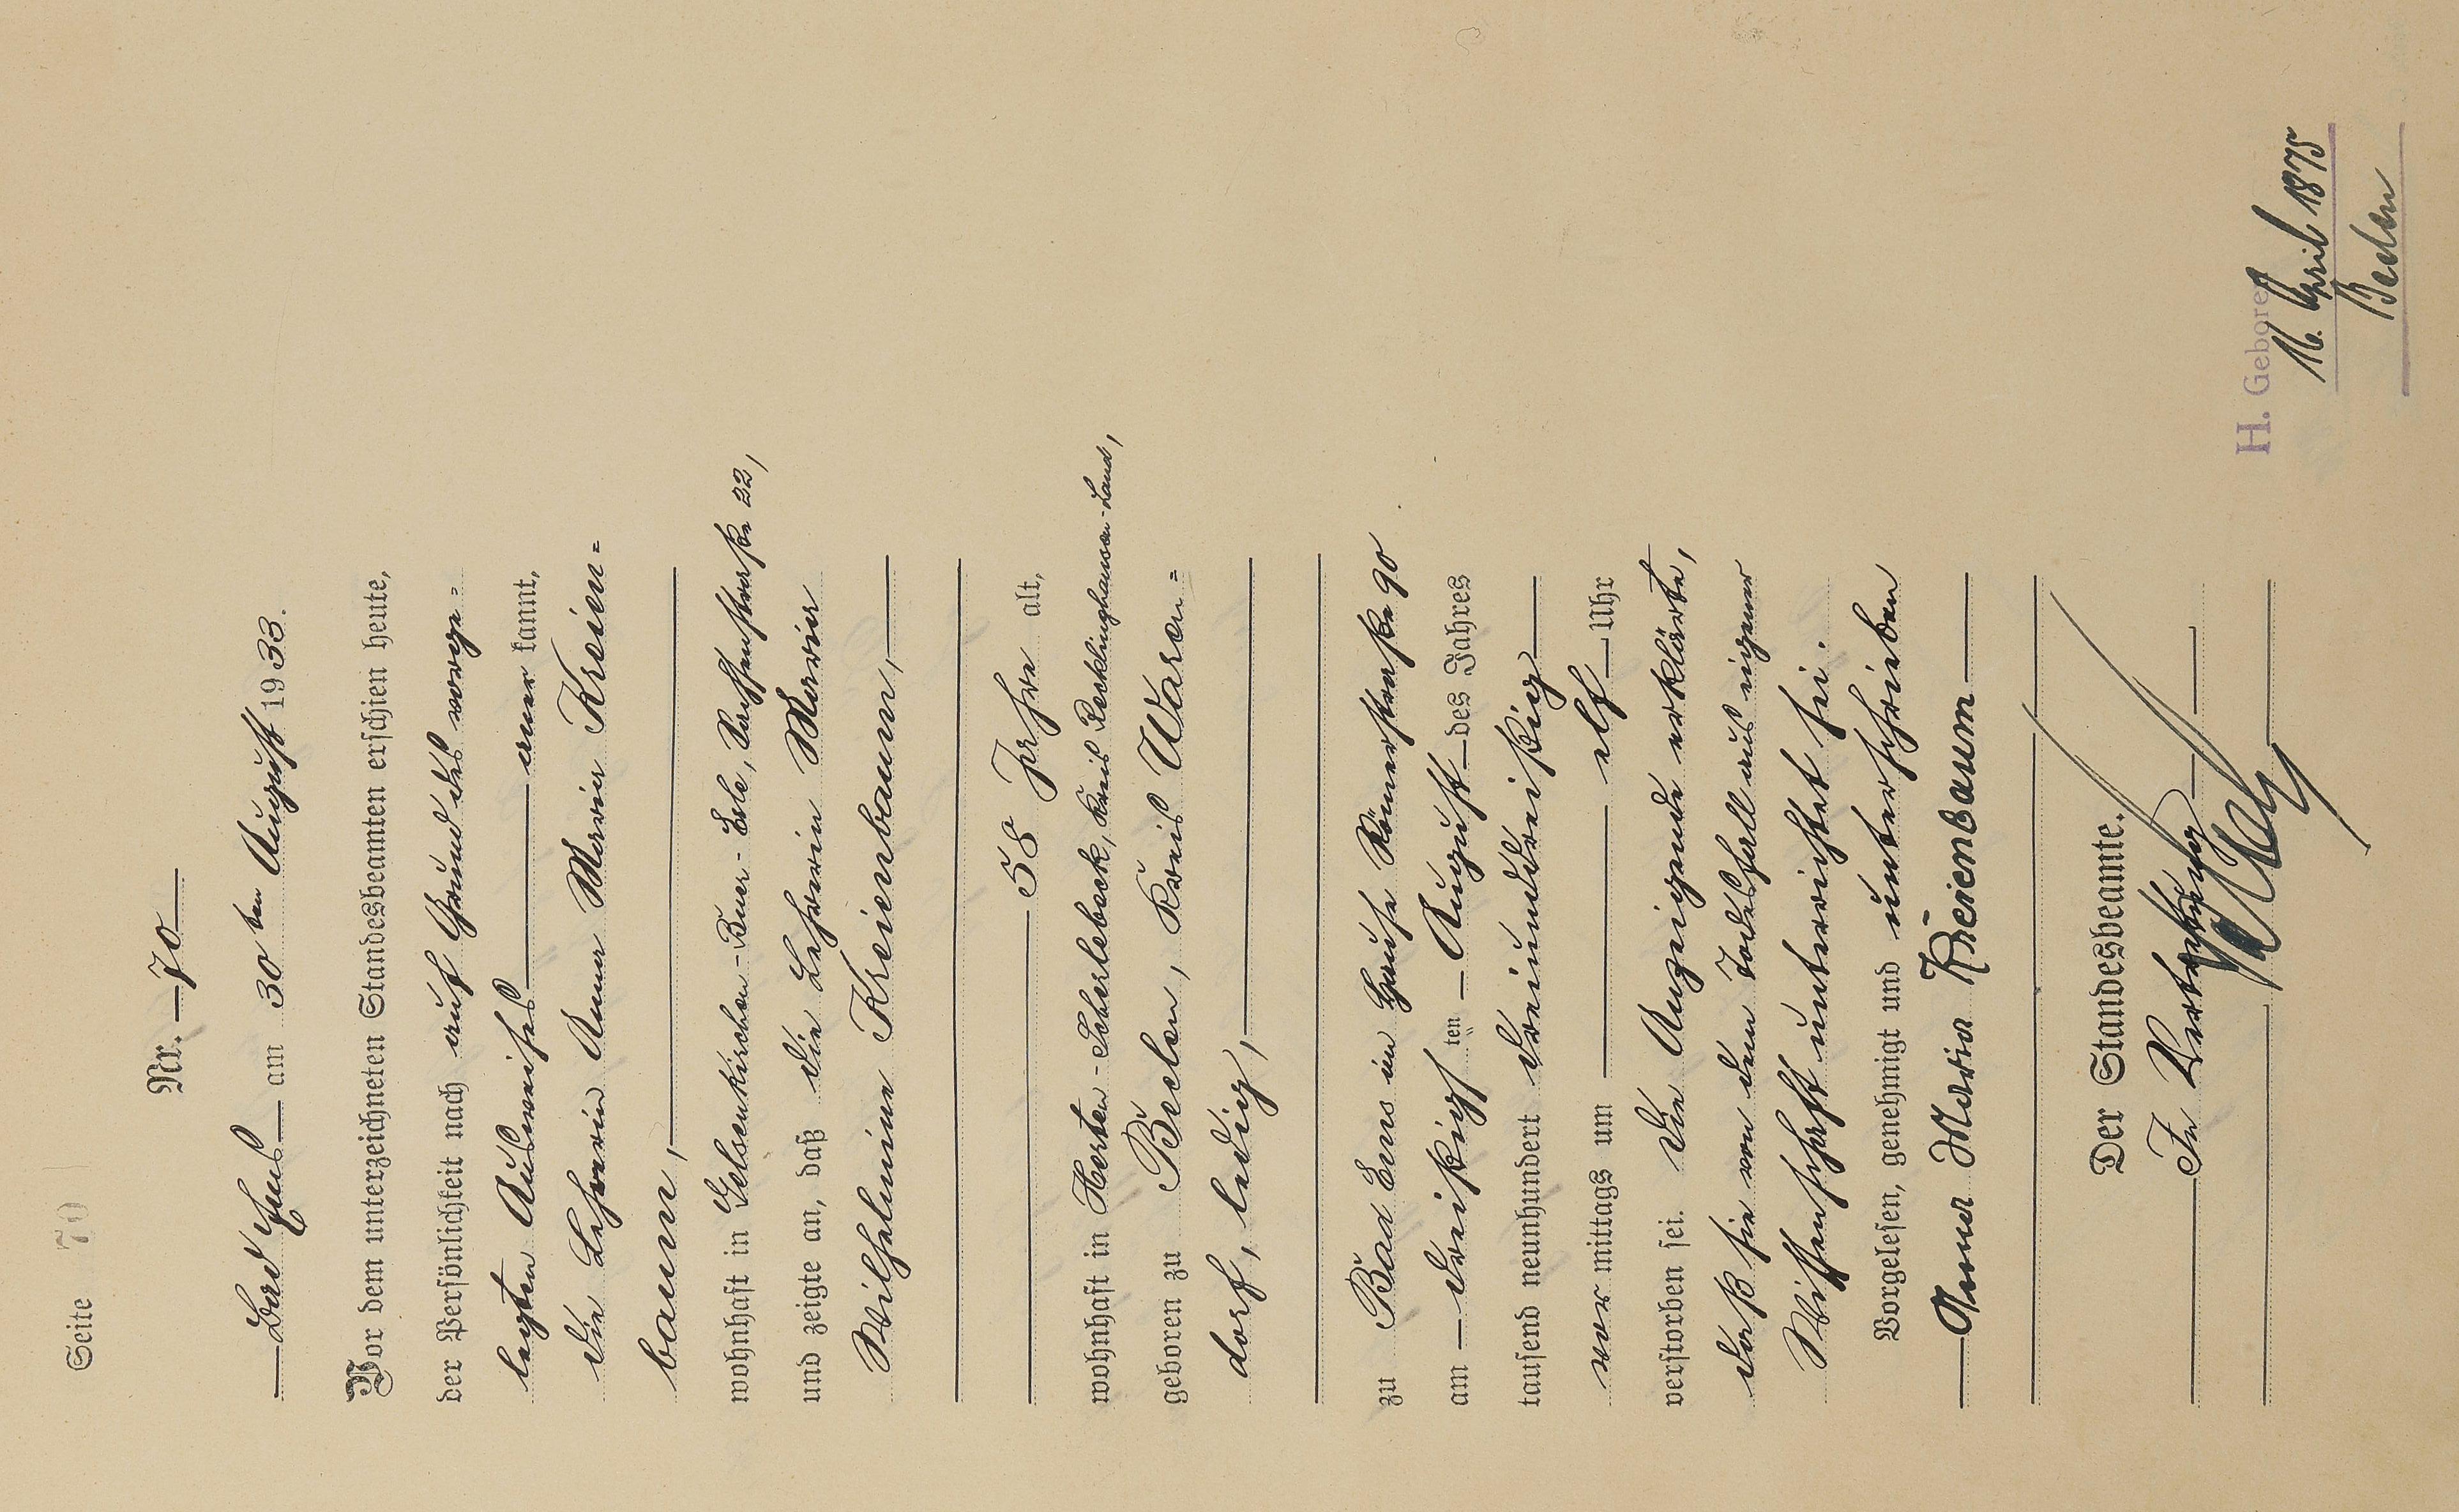 Seite 70
Nr. 70
Bad Ems am 30ten August 1933.
Vor dem unterzeichneten Standesbeamten erschien heute,
der Persönlichkeit nach auf Grund des vorge=
legten Ausweises anerkannt,
die Lehrerin Anna Maria Kreien=
baum,
wohnhaft in Gelsenkirchen-Buer-Erle, 22,
und zeigte an, daß die Lehrerin Maria
Wilhelmine Kreienbaum,
58 Jahre alt,
wohnhaft in Herten-Scherlebeck, Kreis Recklinghausen-Land,
geboren zu Beelen, Kreis Waren=
dorf, ledig,
zu Bad Ems im Hause Römerstraße 90
am dreißigsten August des Jahres
tausend neunhundert dreiunddreißig
vormittags um elf Uhr
verstorben sei. Die Anzeigende erklärte,
daß sie von dem Todesfall aus eigener
Wissenschaft unterrichtet sei.
Vorgelesen, genehmigt und unterschrieben
Anna Maria Kreienbaum
Der Standesbeamte.
In Vertretung
H. Geboren
16. April 1875
Beelen